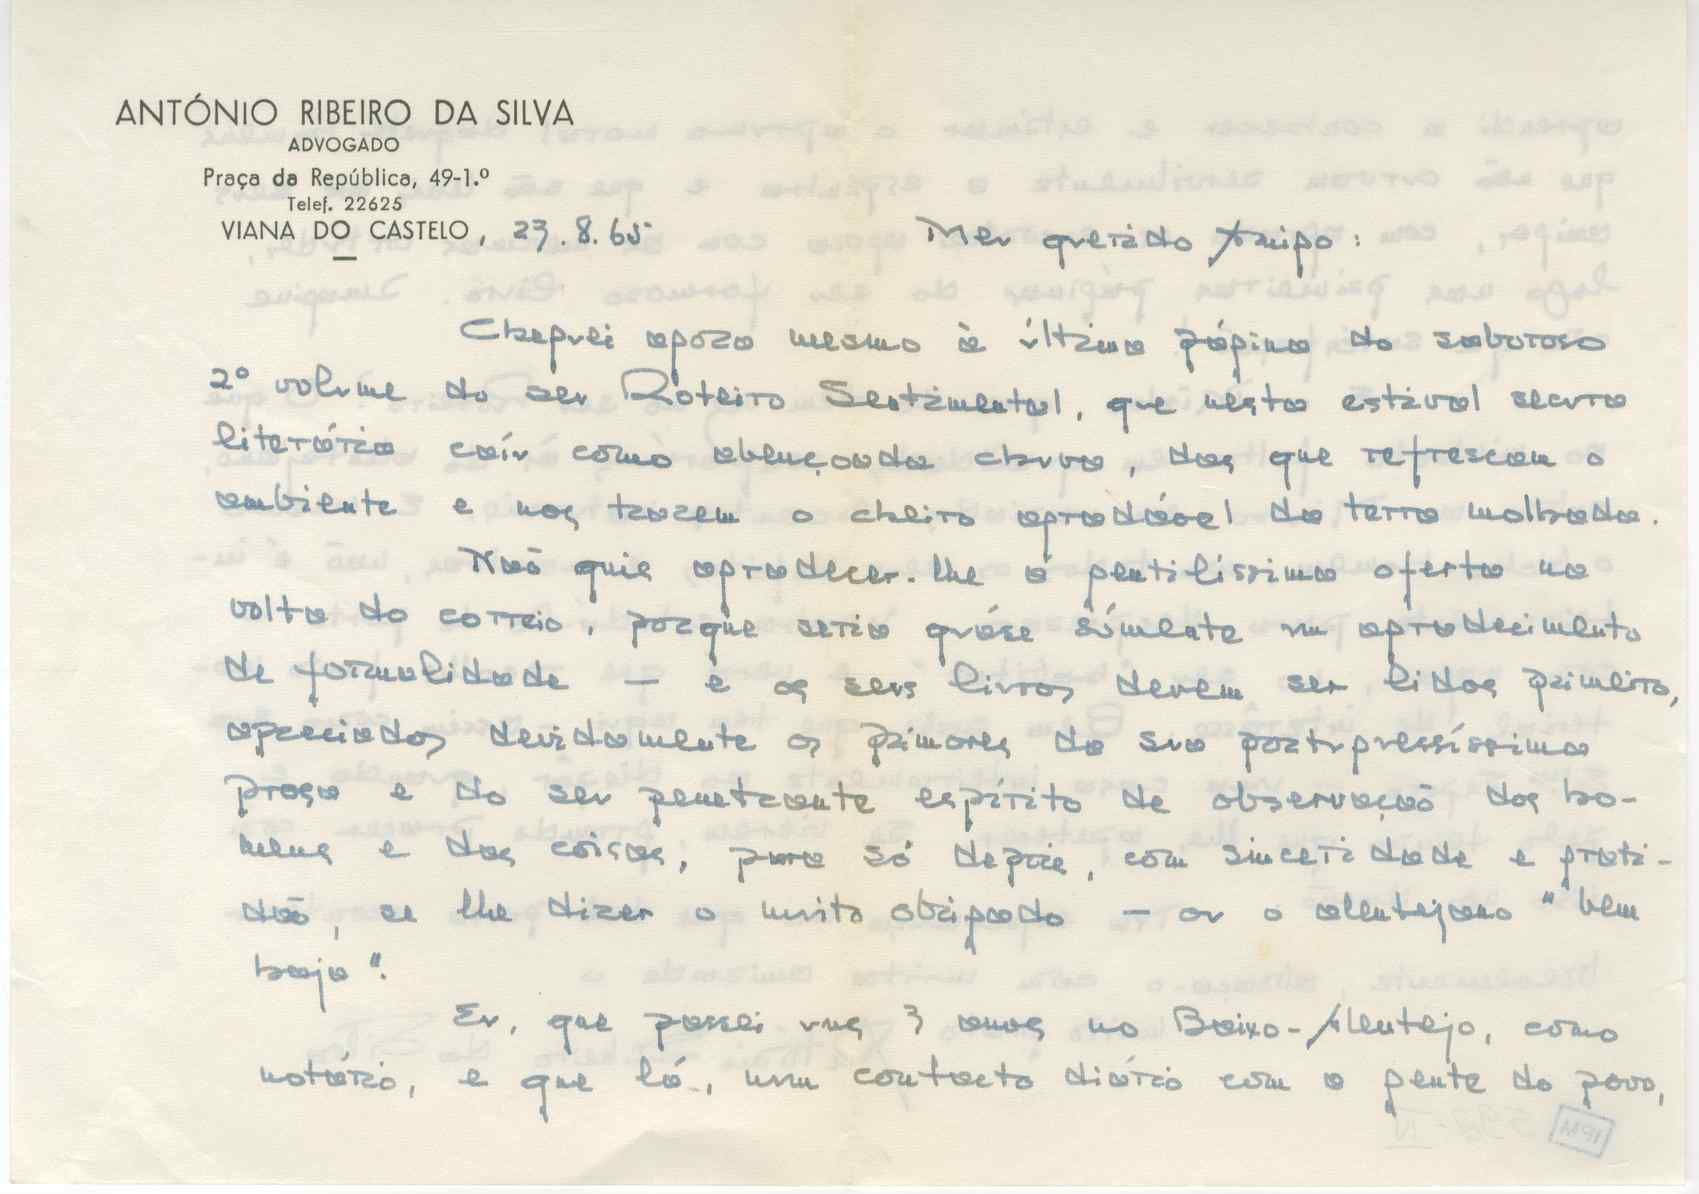 ANTÓNIO RIBEIRO DA SILVA
ADVOGADO
Praça da República, 49-1.º
Telef. 22625
VIANA DO CASTELO, 23.8.65
Meu querido Amigo:
Cheguei agora mesmo à última página do saboroso
2º volume do seu Roteiro Sentimental, que nesta estival secura
literária caíu como abençoada chuva, das que refrescam o
ambiente e nos trazem o cheiro agradável da terra molhada.
Não quis agradecer-lhe a gentilíssima oferta na
volta do correio, porque seria quáse sòmente um agradecimento
de formalidade — e os seus livros devem ser lidos primeiro,
apreciados devidamente os primores da sua portuguesíssima
prosa e do seu penetrante espírito de observação dos ho-
mens e das coisas, para só depois, com sinceridade e grati-
dão, se lhe dizer o muito obrigado — ou o alentejano "bem
haja".
Eu, que passei uns 3 anos no Baixo-Alentejo, como
notário, e que lá, num contacto diário com a gente do povo,
IPM